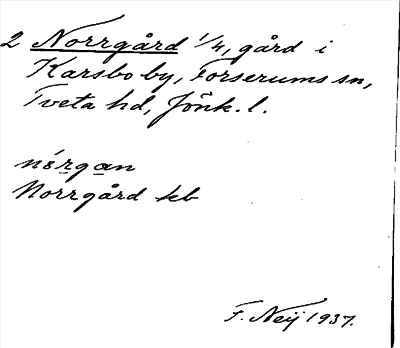 2 Norrgård 1/4, gård i
Karsbo by, Forserums sn,
Tveta hd, Jönk. l.
nérgan
Norrgård kb
F. Neij 1937.